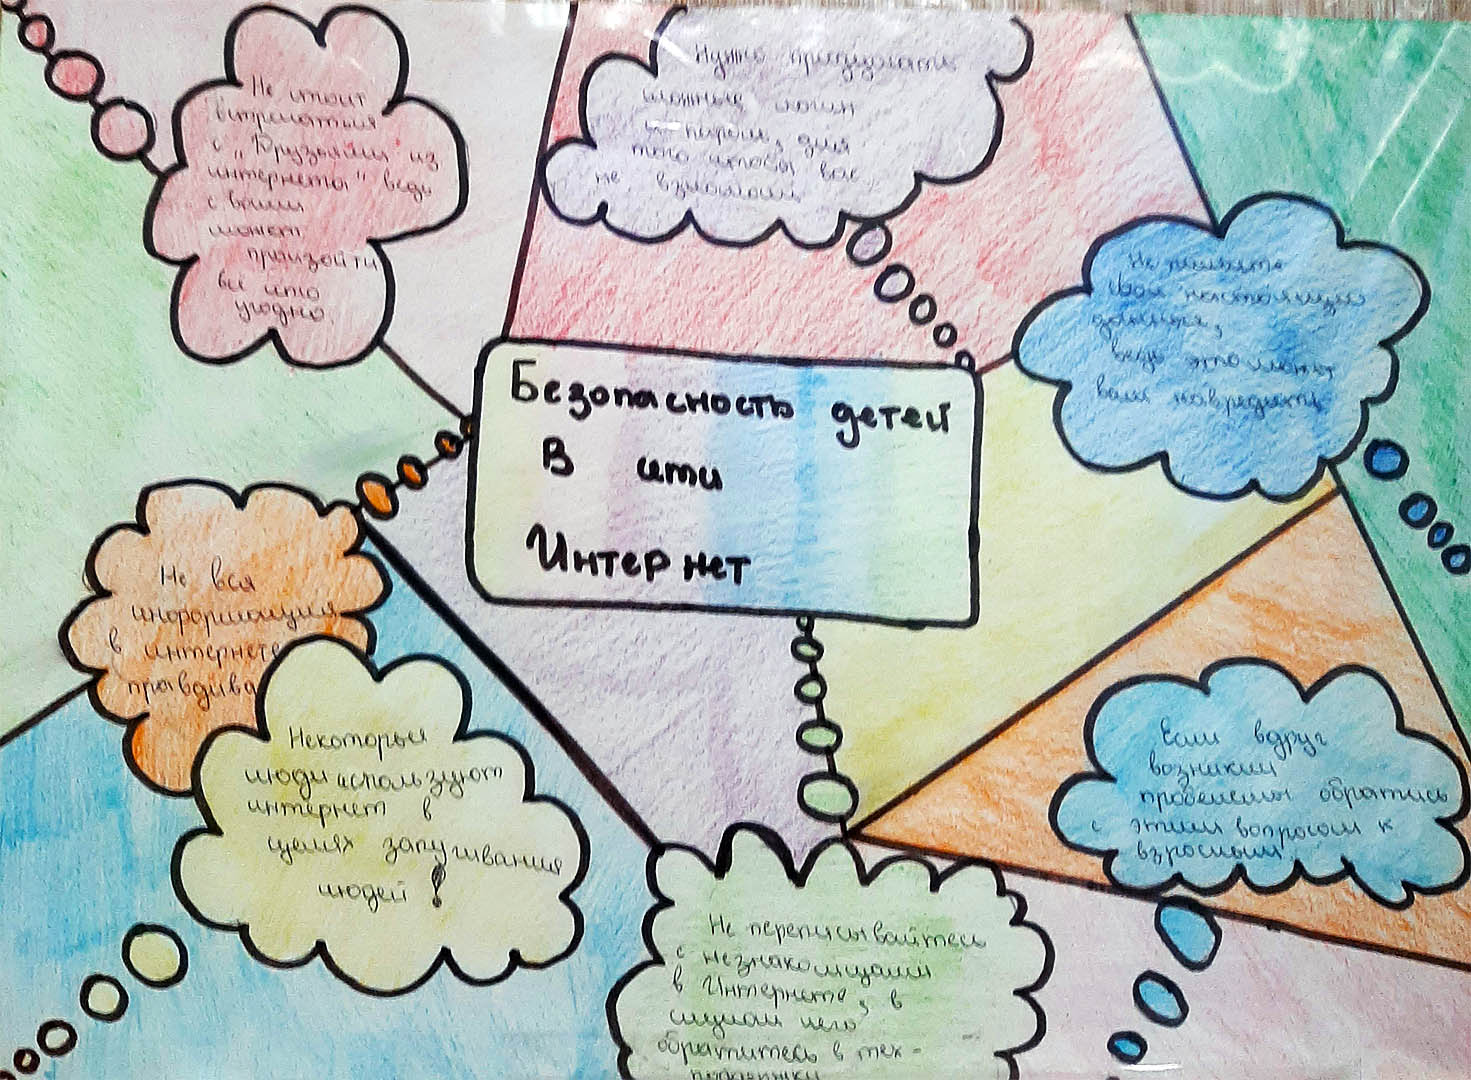 Не стоит
встречаться
с "Друзьями из
интернета" ведь
с вами
может
праизойти
всё что
угодно.
Нужно придумать
сложный логин
и пароль, для
того чтобы вас
не взломали
Не пишите
свои настоящие
данные,
ведь это может
вам навредить
Безопасность детей
В сети
Интернет
Не вся
информация
в интернете
правдива
Некоторые
люди используют
интернет в
целях запугивания
людей!
Если вдруг
возникли
проблемы обратись
с этим вопросом к
взрослым
Не переписывайтесь
с незнакомцами
в Интернете, в
случаи чего
обратитесь в тех-
поддержки